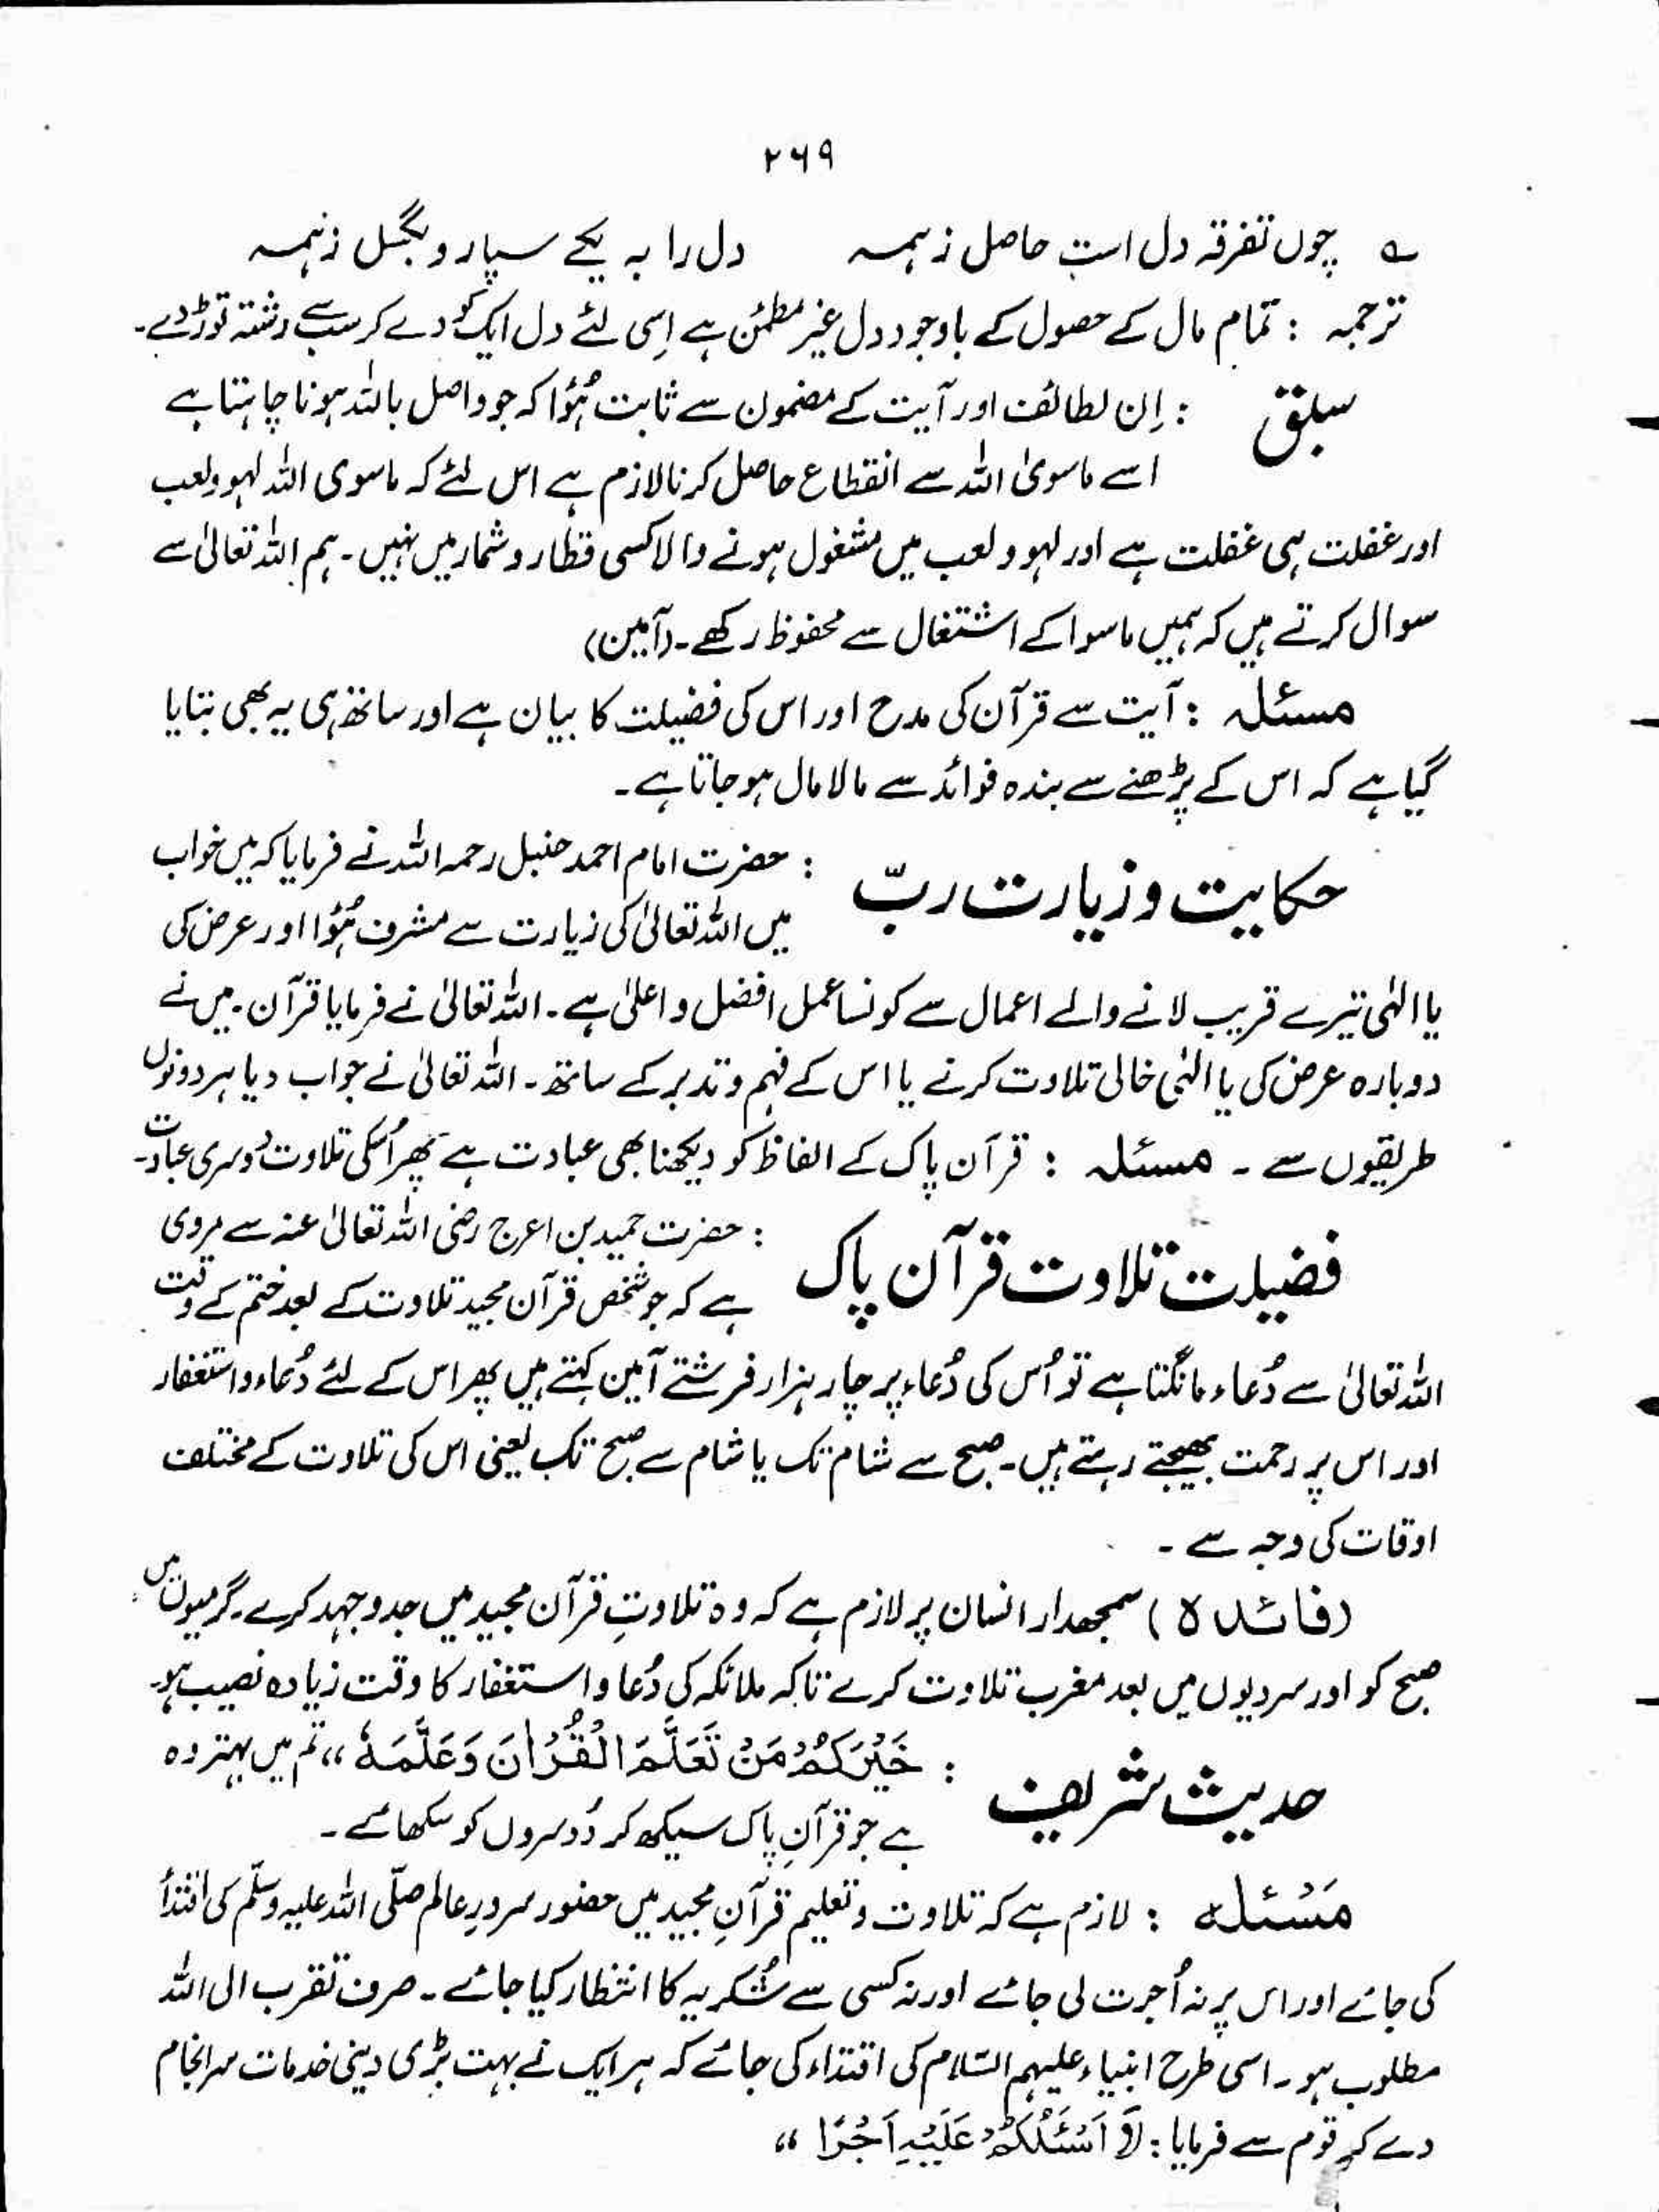 ۲۶۹
؎ چوں تفرقہ دل است حاصل زہمہ دل را بہ یکے سپار و بگسل زہمہ
ترجمہ : تمام مال کے حصول کے باوجود دل غیر مطمئن ہے اِسی لئے دل ایک کو دے کر سب سے رشتہ توڑ دے۔
سبق : اِن لطائف اور آیت کے مضمون سے ثابت ہُوا کہ جو واصل باللہ ہونا چاہتا ہے
اسے ماسویٰ اللہ سے انقطاع حاصل کرنا لازم ہے اس لئے کہ ماسوی اللہ لہو ولعب
اور غفلت ہی غفلت ہے اور لہو و لعب میں مشغول ہونے والا کسی قطار و شمار میں نہیں۔ ہم اللہ تعالیٰ سے
سوال کرتے ہیں کہ ہمیں ماسوا کے اشتغال سے محفوظ رکھے۔ (آمین)
مسئلہ : آیت سے قرآن کی مدح اور اس کی فضیلت کا بیان ہے اور ساتھ ہی یہ بھی بتایا
گیا ہے کہ اس کے پڑھنے سے بندہ فوائد سے مالا مال ہو جاتا ہے۔
حکایت و زیارت ربّ : حضرت امام احمد حنبل رحمہ اللہ نے فرمایا کہ میں خواب
میں اللہ تعالیٰ کی زیارت سے مشرف ہُوا اور عرض کی
یا الٰہی تیرے قریب لانے والے اعمال سے کونسا عمل افضل و اعلیٰ ہے۔ اللہ تعالیٰ نے فرمایا قرآن۔ میں نے
دوبارہ عرض کی یا الٰہی خالی تلاوت کرنے یا اس کے فہم و تدبر کے ساتھ۔ اللہ تعالیٰ نے جواب دیا ہر دونوں
طریقوں سے ۔ مسئلہ : قرآن پاک کے الفاظ کو دیکھنا بھی عبادت ہے پھر اُسکی تلاوت دُوسری عبادت۔
فضیلت تلاوت قرآن پاک : حضرت حمید بن اعرج رضی اللہ تعالیٰ عنہ سے مروی
ہے کہ جو شخص قرآن مجید تلاوت کے بعد ختم کے وقت
اللہ تعالیٰ سے دُعاء مانگتا ہے تو اُس کی دُعاء پر چار ہزار فرشتے آمین کہتے ہیں پھر اس کے لئے دُعاء و استغفار
اور اس پر رحمت بھیجتے رہتے ہیں۔ صبح سے شام تک یا شام سے صبح تک یعنی اس کی تلاوت کے مختلف
اوقات کی وجہ سے ۔
(فائدہ) سمجھدار انسان پر لازم ہے کہ وہ تلاوتِ قرآن مجید میں جد و جہد کرے۔ گرمیوں میں
صبح کو اور سردیوں میں بعد مغرب تلاوت کرے تاکہ ملائکہ کی دُعا و استغفار کا وقت زیادہ نصیب ہو۔
حدیث شریف : خَيْرُكُمْ مَنْ تَعَلَّمَ الْقُرْاٰنَ وَعَلَّمَهٗ ،، تم میں بہتر وہ
ہے جو قرآنِ پاک سیکھ کر دُوسروں کو سکھائے ۔
مَسْئلہ : لازم ہے کہ تلاوت و تعلیم قرآنِ مجید میں حضور سرورِ عالم صلّی اللہ علیہ وسلّم کی اقتدأ
کی جائے اور اس پر نہ اُجرت لی جائے اور نہ کسی سے شُکریہ کا انتظار کیا جائے ۔ صرف تقرب الی اللہ
مطلوب ہو۔ اسی طرح انبیاء علیہم السّلام کی اقتداء کی جائے کہ ہر ایک نے بہت بڑی دینی خدمات سرانجام
دے کر قوم سے فرمایا : لَآ اَسْئَلُكُمْ عَلَيْهِ اَجْرًا ،،